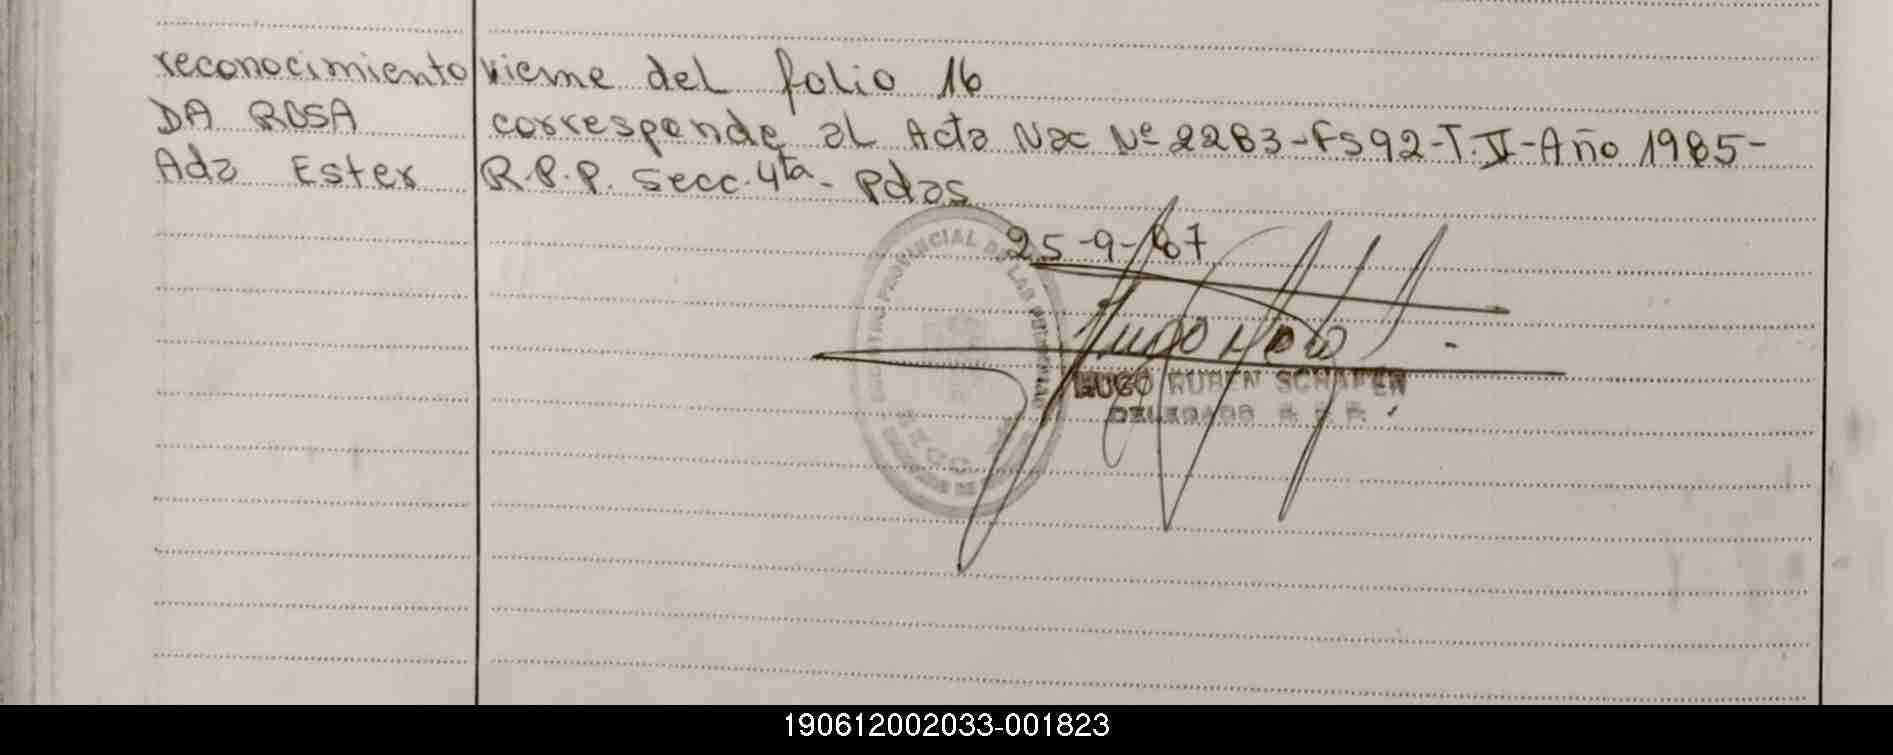 reconocimiento viene del folio 16
DA ROSA corresponde al Acta Nac Nº 2283-Fs92-T.II-Año 1985-
Ada Ester R.P.P. Secc. 4ta- Pdas
REGISTRO PROVINCIAL DE LAS PERSONAS
25-9-
HUGO RUBEN SCHAFER
DELEGADO R.P.P.
190612002033-001823